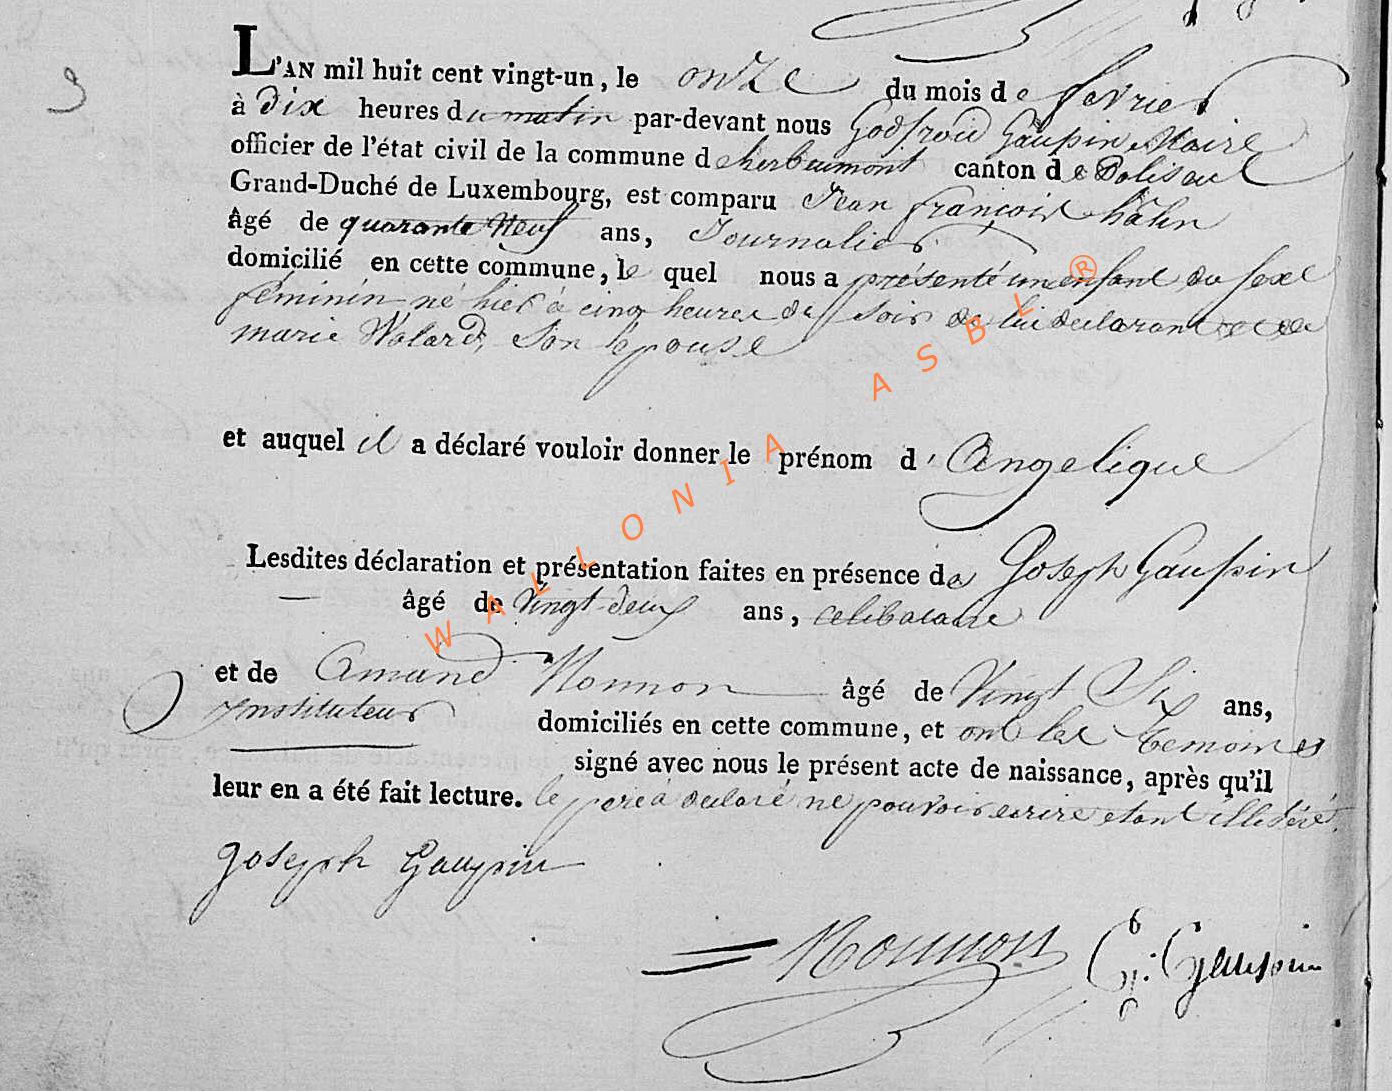 3
L'AN mil huit cent vingt-un, le onze du mois de fevrier
à dix heures du matin par-devant nous Godfroid Gaupin Maire
officier de l'état civil de la commune d'herbeumont canton de Paliseul
Grand-Duché de Luxembourg, est comparu Jean françois hahn
âgé de quarante Neuf ans, Journalier
domicilié en cette commune, le quel nous a présenté un enfant du sexe
féminin né hier à cinq heures du soir de lui declarant et de
marie Walard, son epouse
et auquel il a déclaré vouloir donner le prénom d'Angelique
Lesdites déclaration et présentation faites en présence de Joseph Gaupin
âgé de Vingt-deux ans, celibataire
et de Amand Monnon âgé de Vingt Six ans,
Instituteur domiciliés en cette commune, et ont les temoins
signé avec nous le présent acte de naissance, après qu'il
leur en a été fait lecture. le pere a declaré ne pouvoir ecrire etant illetéré.
Joseph Gaupin
Monnon G: Gaupin
WALLONIA ASBL ®